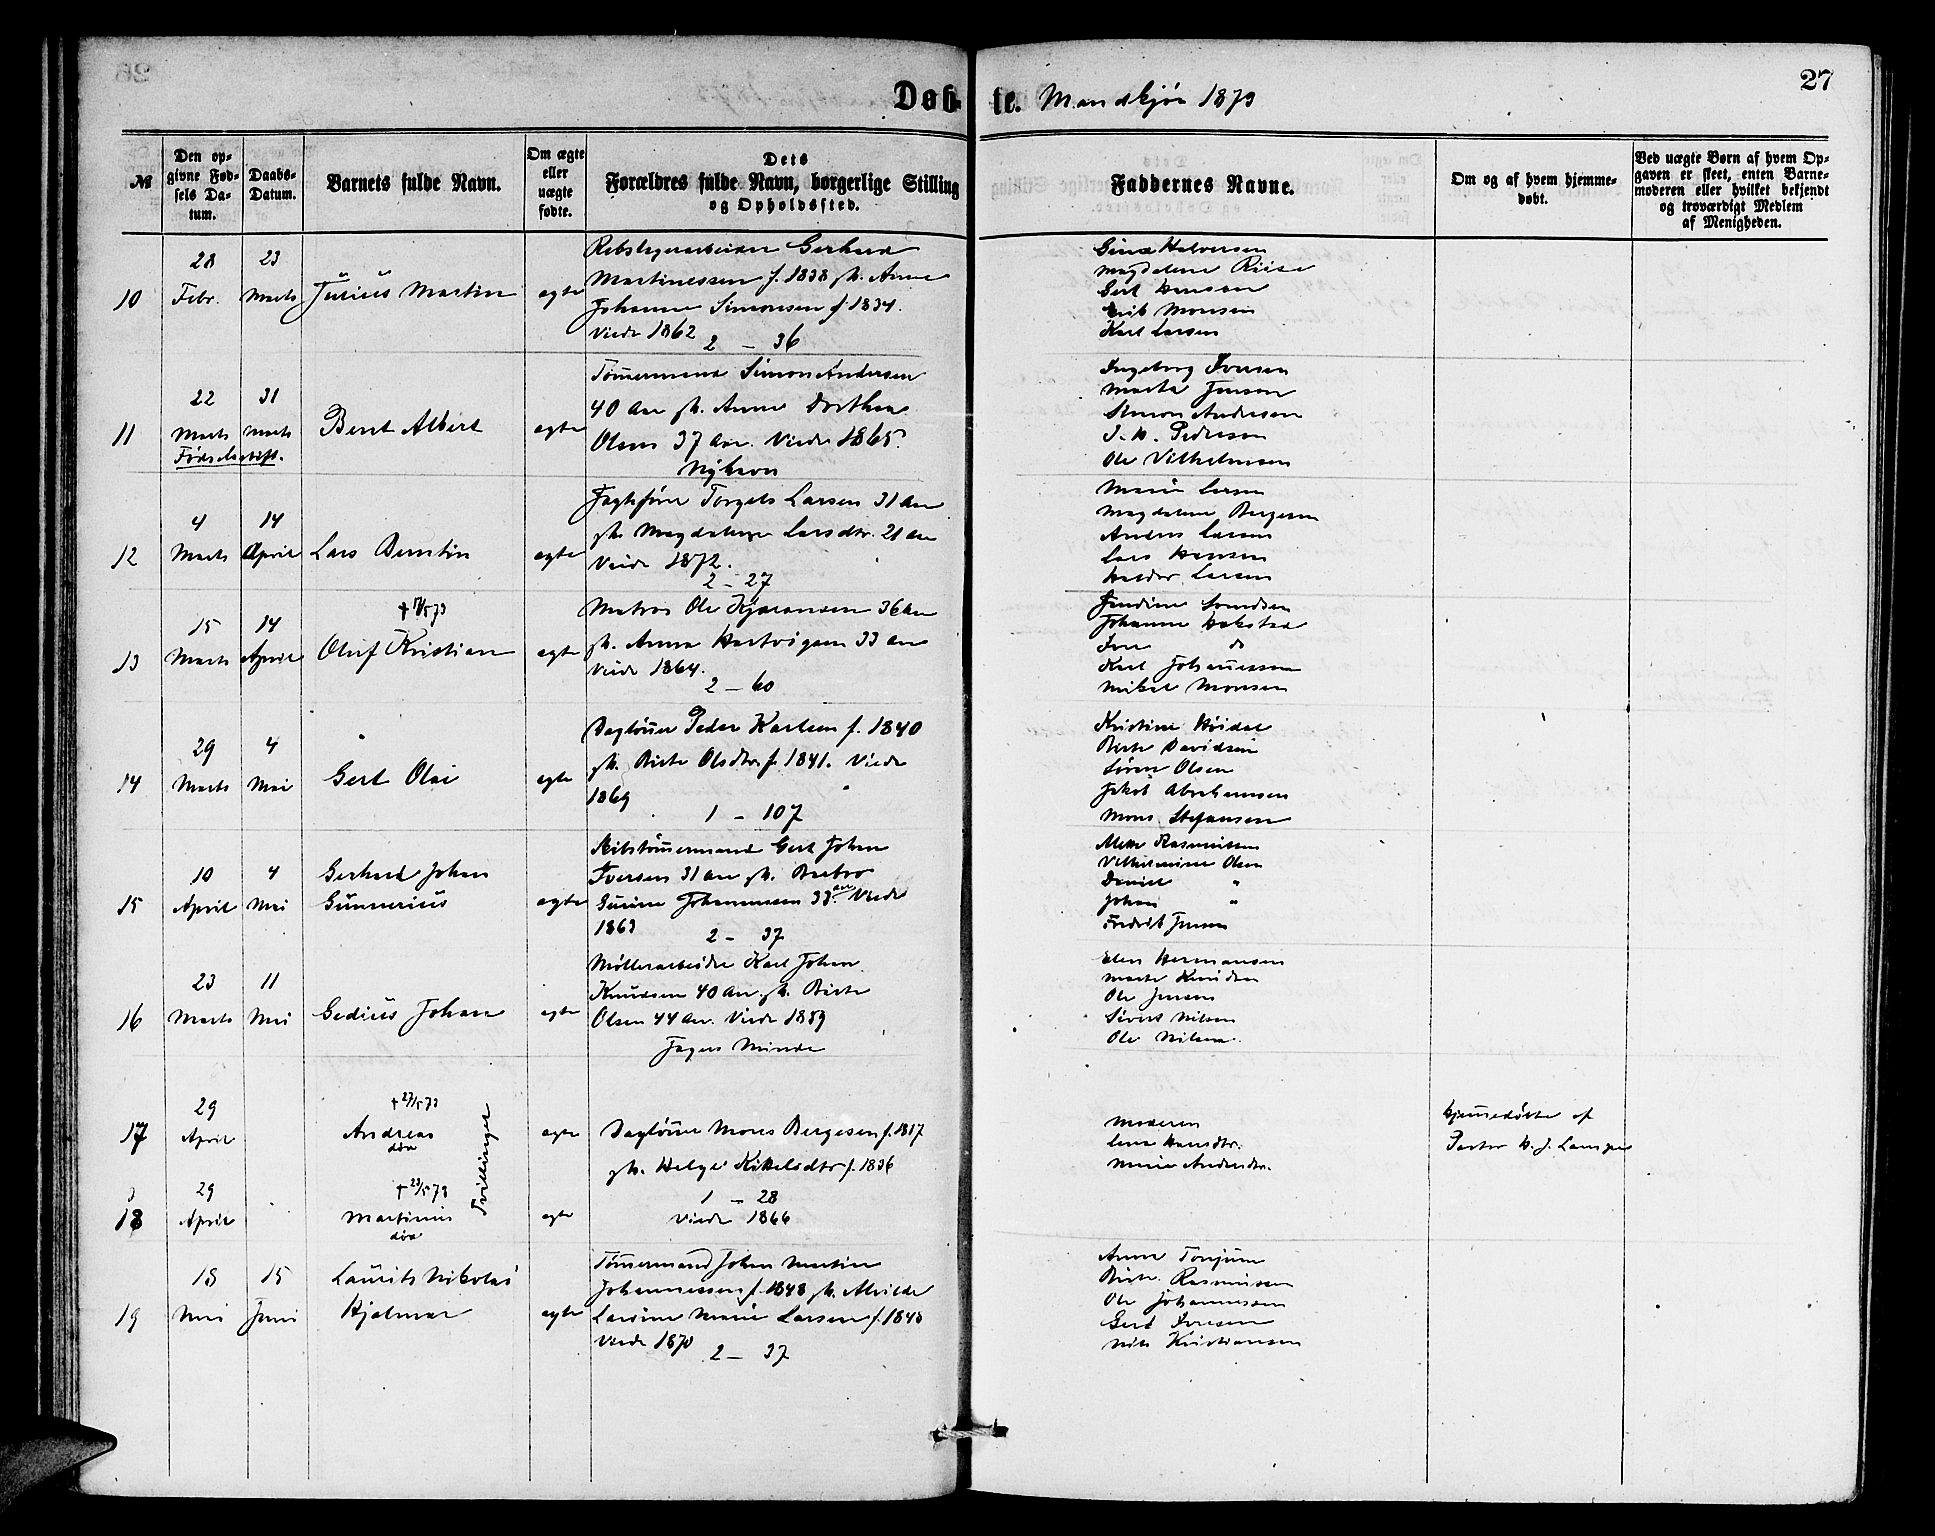 27
Døbte. Mandkjøn 1873
№
Den opgivne Fødsels Datum.
Daabs-Datum.
Barnets fulde Navn.
Om ægte eller uægte fødte.
Dets Forældres fulde Navn, borgerlige Stilling og Opholdssted.
Faddernes Navne.
Om og af hvem hjemmedøbt.
Ved uægte Børn af hvem Opgaven er skeet, enten Barnemoderen eller hvilket bekjendt og troværdigt Medlem af Menigheden.
10
28 Febr.
23 Marts
Julius Martin
egte
Rebslagerarbeider Gerhard
Martinessen f. 1838 gh. Anne
Johanne Simonsen f 1834.
Viede 1862
2 - 36
Gina Halvorsen
Magdalene Riise
Gert Hansen
Erik Monsen
Karl Larsen
11
22 Marts
31 Marts
Fødselsstift.
Bent Albert
egte
Tømermand Simon Andersen
40 Aar gh. Anne Dorthea
Olsen 37 Aar. Viede 1865.
Nyhavn
Ingeborg Iversen
Marta Jensen
Simon Andersen
J. H. Pedersen
Ole Vilhelmsen
12
4 Marts
14 April
Lars Berntin
egte
Jagtefører Torgels Larsen 31 Aar
gh. Magdalene Larsdtr. 21 Aar
Viede 1872.
2 - 27
Marie Larsen
Magdalene Bergesen
Anders Larsen
Lars Hansen
Haldor Larsen
13
15 Marts
14 April
Oluf Kristian
egte
Matros Ole Kjaransen 36 Aar
gh. Anna Hartvigsen 33 Aar
Viede 1864.
2 - 60
Johanne Hakstad
Iver do
Karl Johannessen
Mikal Monsen
14
29 Marts
4 Mai
Gert Olai
egte
Daglønner Peder Karlsen f. 1840
gh. Birte Olsdtr f. 1841. Viede
1869
1 - 107
Kristine Høidal
Birte Davidsen
Søren Olsen
Jakob Abrahamsen
Mons Stefansen
15
10 April
4 Mai
Gerhard Johan
Gunnerius
egte
Skibstømmermand Gert Johan
Iversen 31 Aar gh. Barbro
Gurine Johannessen 33 Aar. Viede
1863
2 - 37
Mette Rasmussen
Vilhelmine Olsen
Daniel "
Johan "
Fredrik Jensen
16
23 Marts
11 Mai
Gedius Johan
egte
Møllerarbeider Karl Johan
Knudsen 40 Aar. gh. Birte
Olsen 44 Aar. Viede 1859
Jagers Minde
Elen Hermansen
Marte Knudsen
Ole Jensen
Sivert Nilsen
Ole Nilsen.
17
29 April
† 27/5 73
Andreas
død
Tvillinger
egte
Daglønner Mons Bergesen f. 1817
gh. Helge Kittelsdtr f. 1836
1 - 28
Viede 1866
Moderen
Lena Hansdtr.
Marie Andersdtr.
hjemmedøbte af
Pastor H. J.
18
29 April
† 23/5 73
Martinius
død
egte
19
18 Mai
15 Juni
Laurits Nikolai
Hjalmar
egte
Tømmermand Johan Martin
Johannessen f. 1848 gh. Alvilde
Larsine Marie Larsen f. 1848
Viede 1870
2 - 37
Anne Tonjum
Birte Rasmussen
Ole Johannessen
Gerd Iversen
Nils Kristiansen